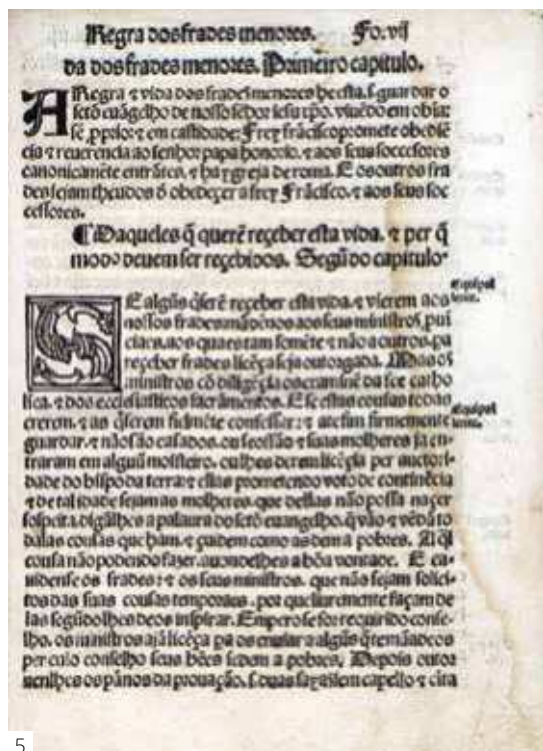 Regra dos frades menores. Fo. vij
da dos frades menores. Primeiro capitulo.
A Regra ⁊ vida dos frades menores he esta. s. guardar o
scto euãgelho de nosso señor iesu xpo. viuẽdo em obia:
sẽ ꝓprio: ⁊ em castidade: Frey frãcisco promete obediẽ
cia ⁊ reuerencia ao senhor papa honorio. ⁊ aos seus soccessores
canonicamẽte entrãtes. ⁊ ha ygreja de roma. E os outros fra
des sejam theudos d obedeçer a frey Frãcisco. ⁊ aos seus soc
cessores.
¶ Daqueles q̃ querẽ reçeber esta vida. ⁊ per q̃
modo deuem ser reçebidos. Segũdo capitulo.
SE algũs q̃serẽ reçeber esta vida. ⁊ vierem aos
nossos frades mãdẽnos aos seus ministros, pui
ciaes. aos quaes tam somẽte ⁊ não a outros. pa
reçeber frades licẽça seja outorgada. Mas os
ministros cõ diligẽçia os examinẽ da fee catho
lica. ⁊ dos ecclesiasticos sacramentos. E se estas cousas todas
crerem. ⁊ as q̃serem fielmẽte confessar: ⁊ ateefim firmemente
guardar. ⁊ não são casados. ou se o são ⁊ suas molheres ja en-
traram em alguũ moesteiro. ou lhes derem licẽçia per auctori-
dade do bispo da terra: ⁊ ellas prometendo voto de continẽcia
⁊ de tal idade sejam as molheres. que dellas não possa naçer
sospeita. digãlhes a palaura do scto euangelho. q̃ vão ⁊ vẽdã to
dalas cousas que ham. ⁊ as dem a pobres. A q̃l
cousa não podendo fazer. auondelhes a bõa vontade. E
os frades: ⁊ os seus ministros. que não sejam solici-
tos das suas cousas temporaes. por que liuremente façam de
las segũdo lhes deos inspirar. Empero se for requirido conse-
lho. os ministros ajã licẽça pa os enuiar a algũs q̃ temã a deos
per cujo conselho seus bẽes sejam a pobres. Depois
lhes os pãnos da prouação. s. duas sem capello ⁊ cita
5